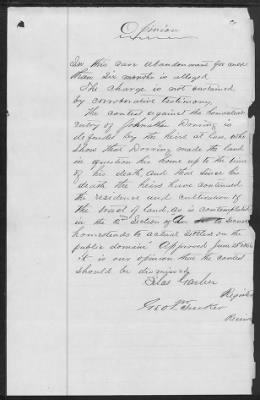 Opinion
In this case abandonment for more
than six months is alleged
The charge is not sustained
by corroborative testimony.
The contest against the homestead
entry of Johnathan Doning is
defended by the heirs at law, who
show that Doning made the land
in question his home up to the time
of his death, and that since his
death the heirs have continued
the residence and cultivation of
the tract of land, as is contemplated
in the 2nd Section of An to secure
homesteads to actual settlers on the
public domain" Approved June
It is our opinion that the contest
should be dismissed
Silas Garber
Register
Geo W. Tucker
Receiver